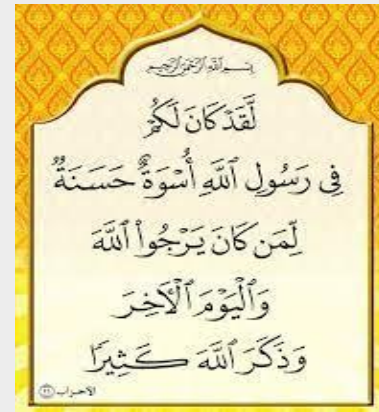 بِسْمِ اللَّهِ الرَّحْمَٰنِ الرَّحِيمِ
لَّقَدْ كَانَ لَكُمْ
فِى رَسُولِ ٱللَّهِ أُسْوَةٌ حَسَنَةٌ
لِّمَن كَانَ يَرْجُوا۟ ٱللَّهَ
وَٱلْيَوْمَ ٱلْأَخِرَ
وَذَكَرَ ٱللَّهَ كَثِيرًا
الأحزاب ٢١